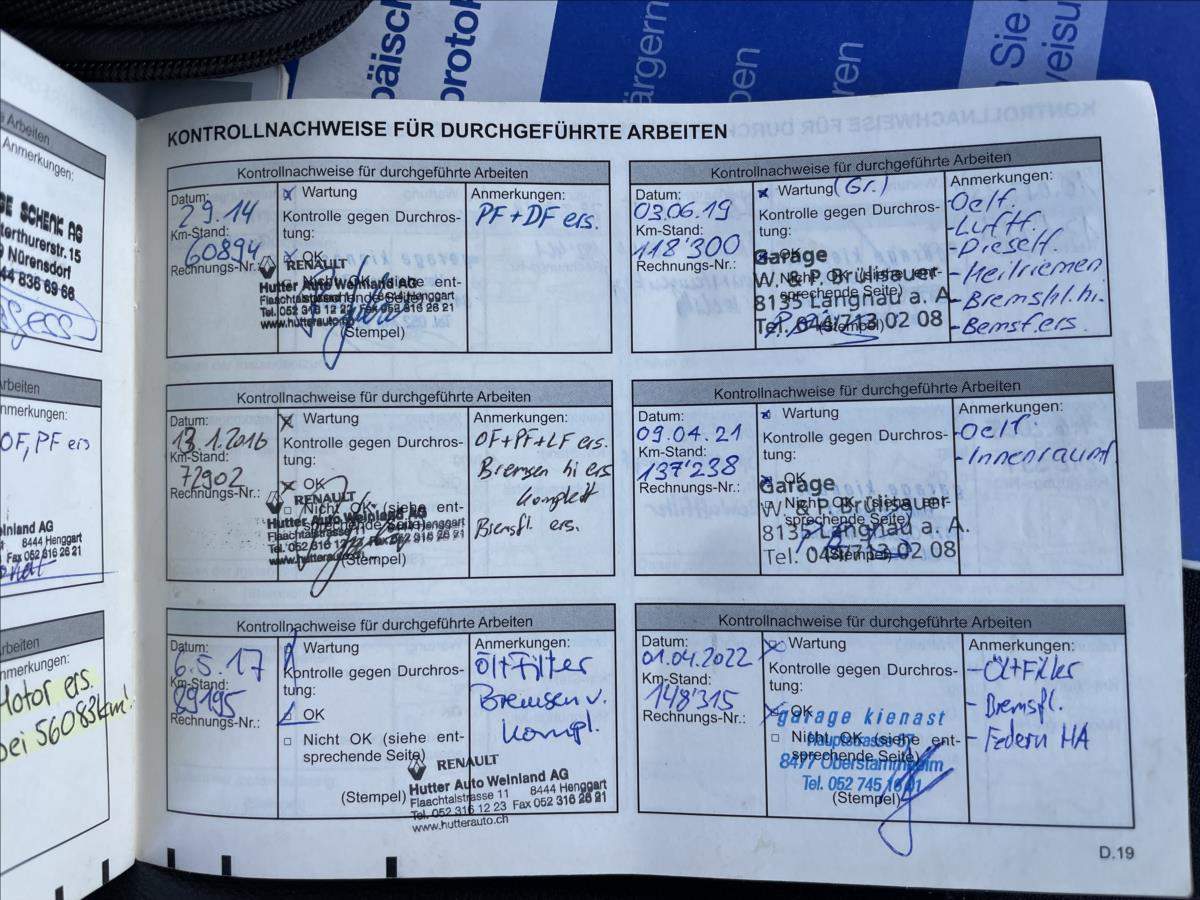 päisch
protok
ärgern
ben
ren
n Sie
veisu
KONTROLLNACHWEISE FÜR DURCHGEFÜHRTE ARBEITEN
Arbeiten
Anmerkungen:
GE SCHENK AG
terthurerstr. 15
Nürensdorf
44 836 69 66
rbeiten
nmerkungen:
OF, PF ers
inland AG
8444 Henggart
Fax 052 316 26 21
rbeiten
nmerkungen:
Motor ers.
bei 56083km!
Kontrollnachweise für durchgeführte Arbeiten
Datum:
2.9.14
Km-Stand:
60894
Rechnungs-Nr.:
x Wartung
Kontrolle gegen Durchros-
tung:
OK
Nicht OK (siehe ent-
sprechende Seite)
RENAULT
Hutter Auto Weinland AG
Flaachtalstrasse 11 8444 Henggart
Tel. 052 316 12 23 Fax 052 316 26 21
www.hutterauto.ch
(Stempel)
Anmerkungen:
PF + DF ers.
Kontrollnachweise für durchgeführte Arbeiten
Datum:
13.1.2016
Km-Stand:
72902
Rechnungs-Nr.:
x Wartung
Kontrolle gegen Durchros-
tung:
x OK
Nicht OK (siehe ent-
sprechende Seite)
RENAULT
Hutter Auto Weinland AG
Flaachtalstrasse 11 8444 Henggart
Tel. 052 316 12 23 Fax 052 316 26 21
www.hutterauto.ch
(Stempel)
Anmerkungen:
OF+PF+LF ers.
Bremsen hi ers
komplett
Bremsfl. ers.
Kontrollnachweise für durchgeführte Arbeiten
Datum:
6.5.17
Km-Stand:
89195
Rechnungs-Nr.:
Wartung
Kontrolle gegen Durchros-
tung:
OK
Nicht OK (siehe ent-
sprechende Seite)
(Stempel)
RENAULT
Hutter Auto Weinland AG
Flaachtalstrasse 11 8444 Henggart
Tel. 052 316 12 23 Fax 052 316 26 21
www.hutterauto.ch
Anmerkungen:
Öl+Filter
Bremsen v.
kompl.
Kontrollnachweise für durchgeführte Arbeiten
Datum:
03.06.19
Km-Stand:
118'300
Rechnungs-Nr.:
x Wartung (Gr.)
Kontrolle gegen Durchros-
tung:
x OK
Nicht OK (siehe ent-
sprechende Seite)
Garage
W. & P. Brülisauer
8135 Langnau a. A.
Tel. 044 713 02 08
(Stempel)
Anmerkungen:
- Oelf.
- Luftf.
- Dieself.
- Keilriemen
- Bremskl. hi.
- Bemsf. ers.
Kontrollnachweise für durchgeführte Arbeiten
Datum:
09.04.21
Km-Stand:
137'238
Rechnungs-Nr.:
x Wartung
Kontrolle gegen Durchros-
tung:
x OK
Nicht OK (siehe ent-
sprechende Seite)
Garage
W. & P. Brülisauer
8135 Langnau a. A.
Tel. 044 713 02 08
(Stempel)
Anmerkungen:
- Oelf.
- Innenraumf
Kontrollnachweise für durchgeführte Arbeiten
Datum:
01.04.2022
Km-Stand:
148'315
Rechnungs-Nr.:
x Wartung
Kontrolle gegen Durchros-
tung:
x OK
Nicht OK (siehe ent-
sprechende Seite)
garage kienast
Hauptstrasse
8477 Oberstammheim
Tel. 052 745
(Stempel)
Anmerkungen:
- Öl+Filter
- Bremsfl.
- Federn HA
D.19